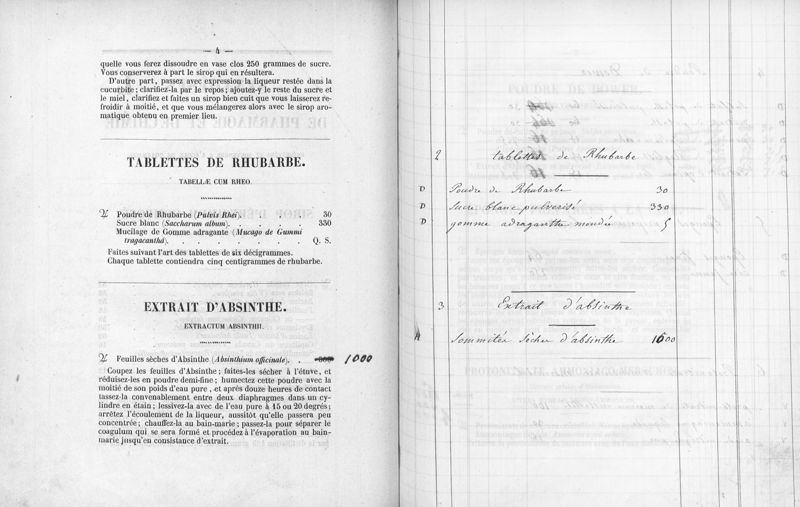 — 4 —
quelle vous ferez dissoudre en vase clos 250 grammes de sucre.
Vous conserverez à part le sirop qui en résultera.
D'autre part, passez avec expression la liqueur restée dans la
cucurbite; clarifiez-la par le repos; ajoutez-y le reste du sucre et
le miel, clarifiez et faites un sirop bien cuit que vous laisserez re-
froidir à moitié, et que vous mélangerez alors avec le sirop aro-
matique obtenu en premier lieu.
TABLETTES DE RHUBARBE.
TABELLÆ CUM RHEO.
Poudre de Rhubarbe (Pulvis Rhei). . . . 30
Sucre blanc (Saccharum album). . . . . 330
Mucilage de Gomme adragante (Mucago de Gummi
tragacanthâ). . . . . . . . . Q. S.
Faites suivant l'art des tablettes de six décigrammes.
Chaque tablette contiendra cinq centigrammes de rhubarbe.
EXTRAIT D'ABSINTHE.
EXTRACTUM ABSINTHII.
Feuilles sèches d'Absinthe (Absinthium officinale). . 1000
Coupez les feuilles d'Absinthe; faites-les sécher à l'étuve, et
réduisez-les en poudre demi-fine; humectez cette poudre avec la
moitié de son poids d'eau pure, et après douze heures de contact
tassez-la convenablement entre deux diaphragmes dans un cy-
lindre en étain; lessivez-la avec de l'eau pure à 15 ou 20 degrés;
arrêtez l'écoulement de la liqueur, aussitôt qu'elle passera peu
concentrée; chauffez-la au bain-marie; passez-la pour séparer le
coagulum qui se sera formé et procédez à l'évaporation au bain-
marie jusqu'en consistance d'extrait.
2 tablettes de Rhubarbe
D Poudre de Rhubarbe 30
D Sucre blanc pulverisé 330
D gomme adraganthe mondée 5
3 Extrait d'absinthe
Sommités sèches d'absinthe 1000